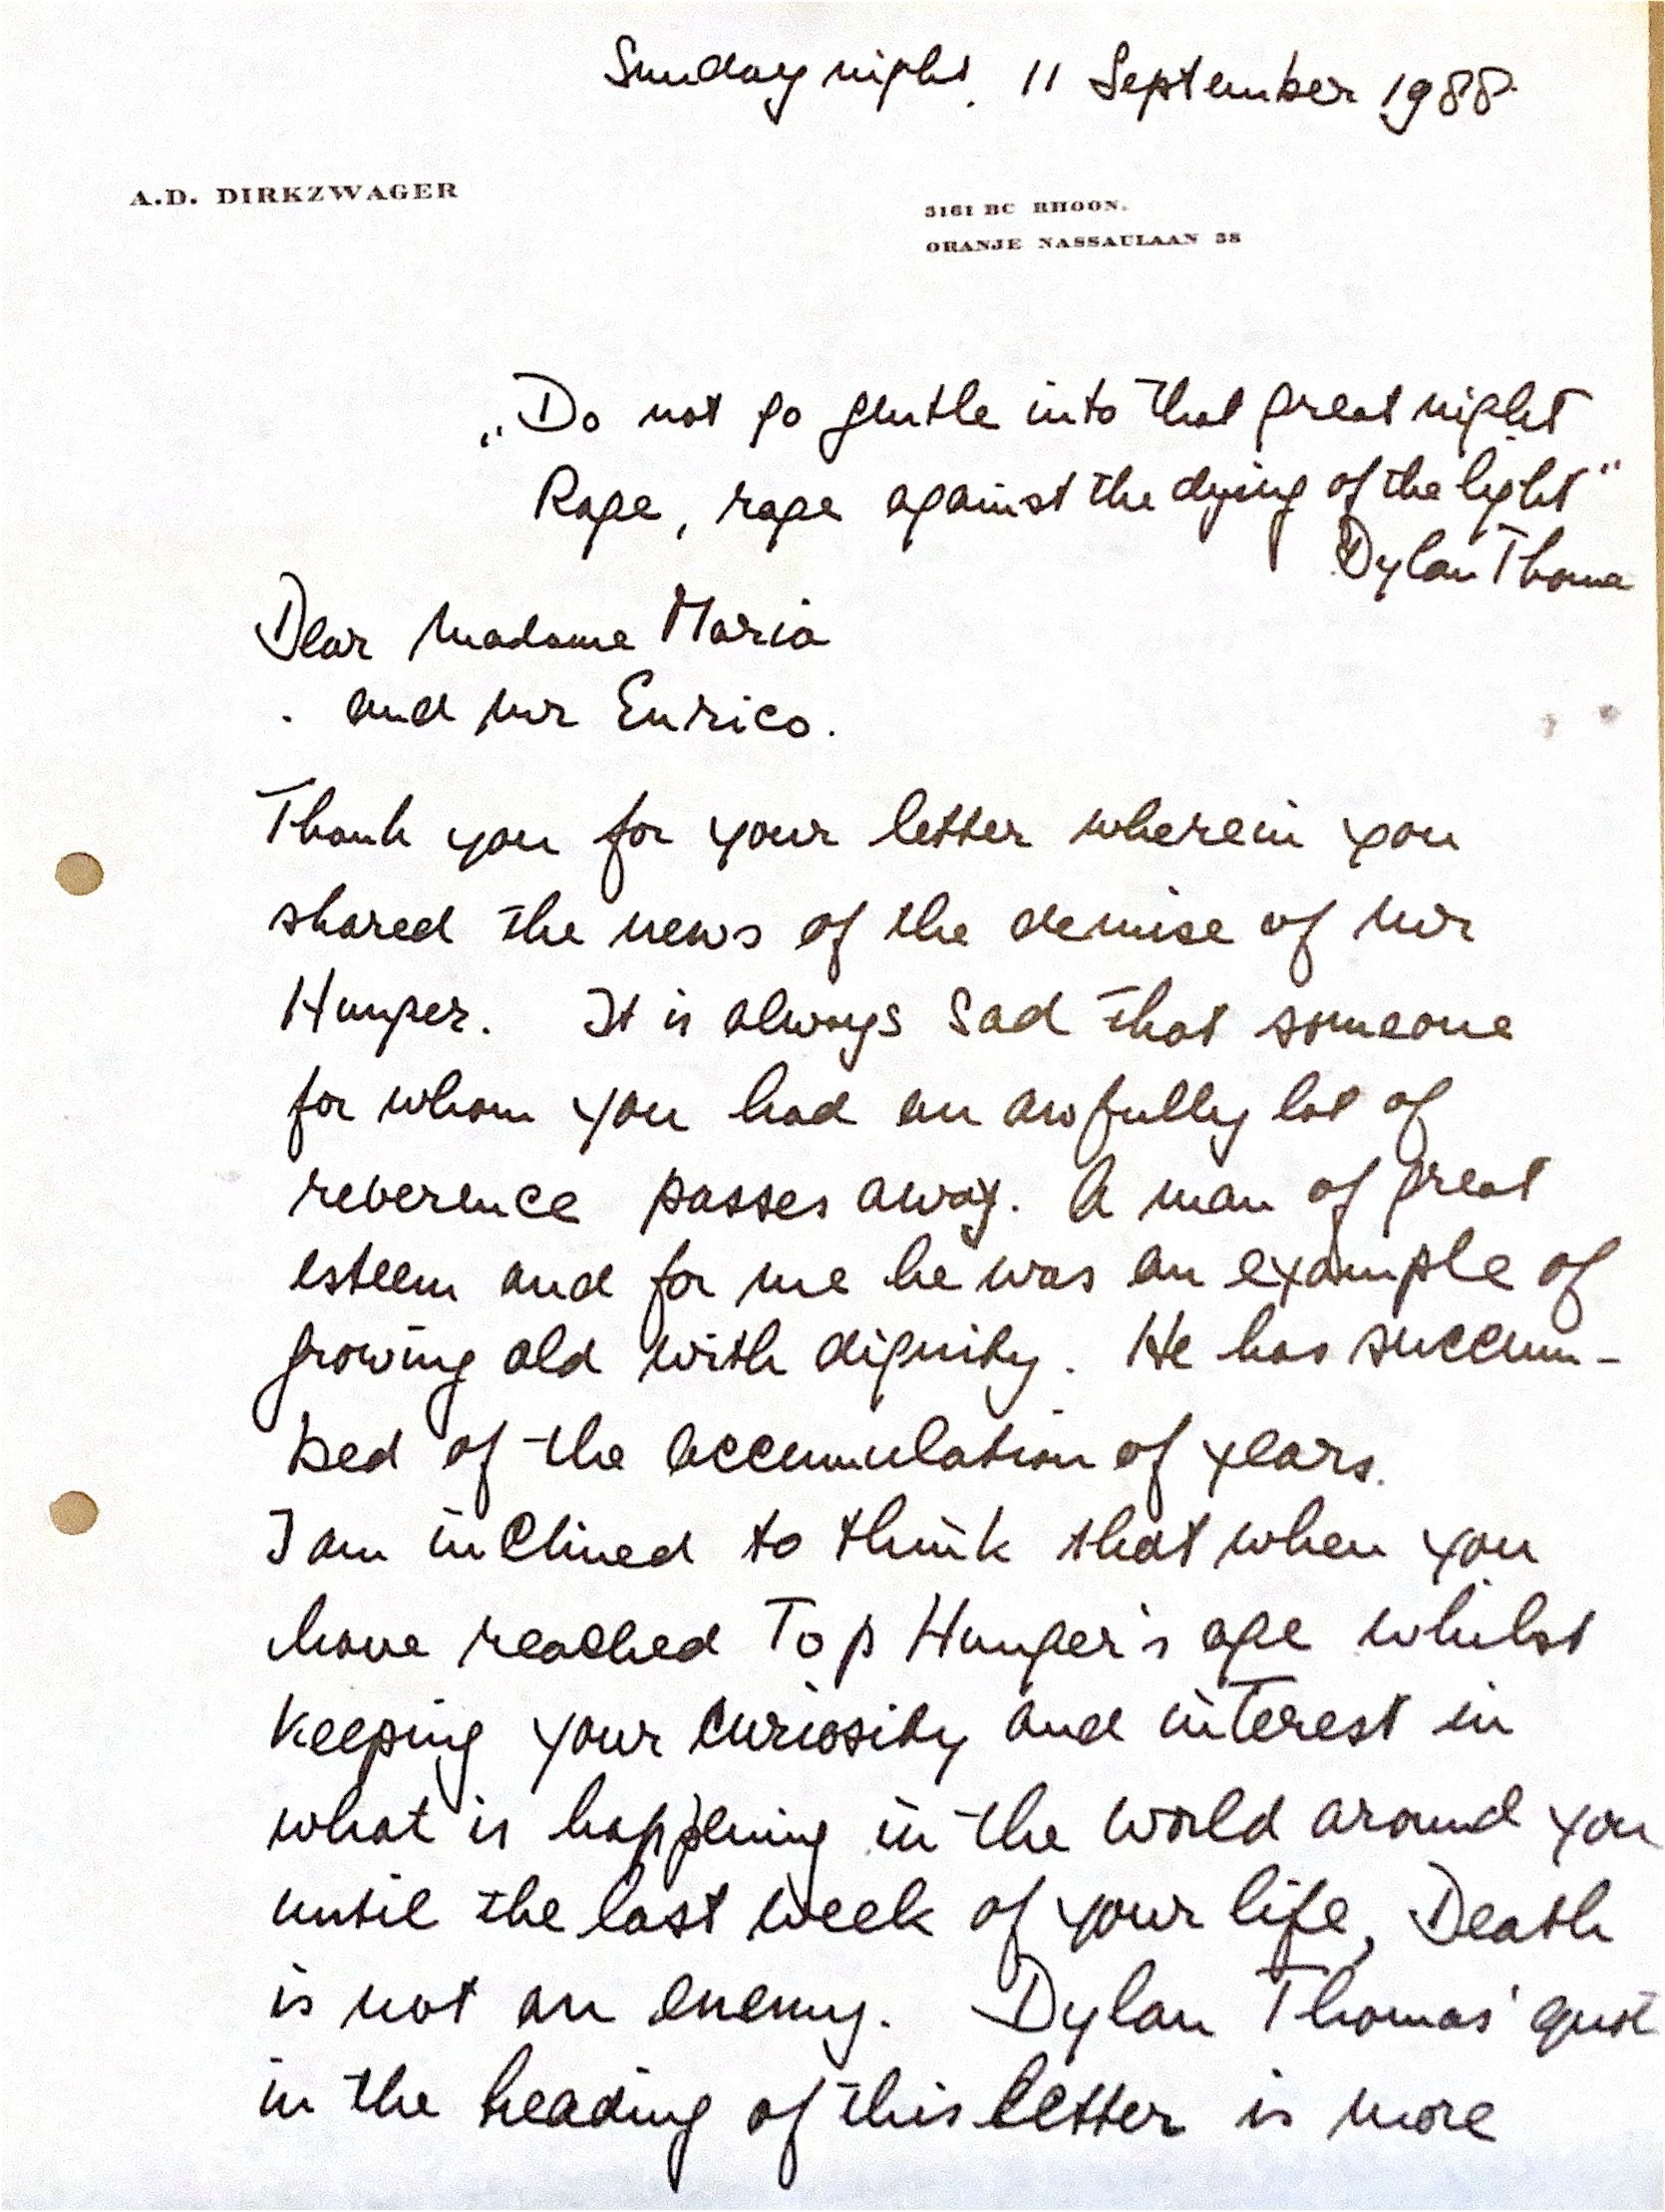 Sunday night. 11 September 1988.
A.D. DIRKZWAGER
3161 BC RHOON.
ORANJE NASSAULAAN 38
„Do not go gentle into that great night
Rage, rage against the dying of the light"
Dylan Thoma
Dear Madame Maria
. and Mr Enrico.
Thank you for your letter wherein you
shared the news of the demise of Mr
Hunger. It is always sad that someone
for whom you had an awfully lot of
reverence passes away. A man of great
esteem and for me he was an example of
growing old with dignity. He has succum-
bed of the accumulation of years.
I am inclined to think that when you
have reached Top Hunger's age whilst
keeping your curiosity and interest in
what is happening in the world around you
until the last week of your life, Death
is not an enemy. Dylan Thomas' quot
in the heading of this letter is more